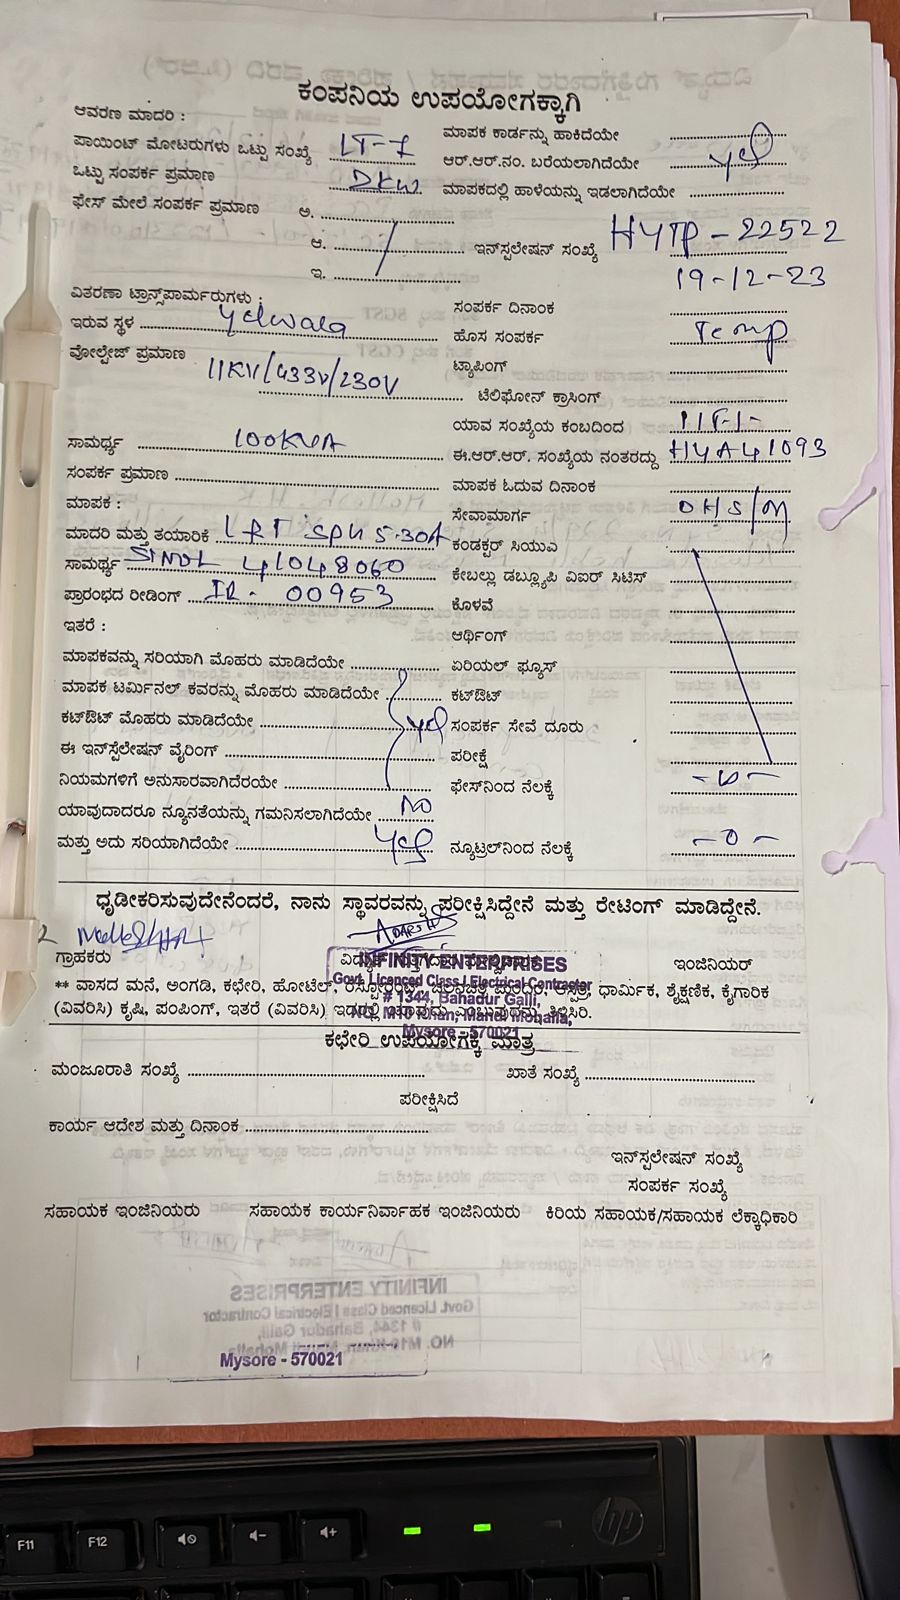 ಕಂಪನಿಯ ಉಪಯೋಗಕ್ಕಾಗಿ
ಆವರಣ ಮಾದರಿ :
ಮಾಪಕ ಕಾರ್ಡನ್ನು ಹಾಕಿದೆಯೇ
ಪಾಯಿಂಟ್ ಮೋಟರುಗಳು ಒಟ್ಟು ಸಂಖ್ಯೆ LT-7
ಆರ್.ಆರ್.ನಂ. ಬರೆಯಲಾಗಿದೆಯೇ yes
ಒಟ್ಟು ಸಂಪರ್ಕ ಪ್ರಮಾಣ
ಮಾಪಕದಲ್ಲಿ ಹಾಳೆಯನ್ನು ಇಡಲಾಗಿದೆಯೇ
ಫೇಸ್ ಮೇಲೆ ಸಂಪರ್ಕ ಪ್ರಮಾಣ ಅ.
ಆ.
ಇನ್‌ಸ್ಪಲೇಷನ್ ಸಂಖ್ಯೆ HYTP-22522
ಇ.
19-12-23
ವಿತರಣಾ ಟ್ರಾನ್ಸ್‌ಪಾರ್ಮರುಗಳು :
ಸಂಪರ್ಕ ದಿನಾಂಕ
ಇರುವ ಸ್ಥಳ Yelwala
ಹೊಸ ಸಂಪರ್ಕ Temp
ವೋಲ್ಟೇಜ್ ಪ್ರಮಾಣ 11KV/433V/230V
ಟ್ಯಾಪಿಂಗ್
ಟೆಲಿಫೋನ್ ಕ್ರಾಸಿಂಗ್
ಯಾವ ಸಂಖ್ಯೆಯ ಕಂಬದಿಂದ
ಸಾಮರ್ಥ್ಯ 100KVA
ಈ.ಆರ್.ಆರ್. ಸಂಖ್ಯೆಯ ನಂತರದ್ದು HYA41093
ಸಂಪರ್ಕ ಪ್ರಮಾಣ
ಮಾಪಕ ಓದುವ ದಿನಾಂಕ
ಮಾಪಕ :
ಸೇವಾಮಾರ್ಗ OHS/M
ಮಾದರಿ ಮತ್ತು ತಯಾರಿಕೆ L&T SPH 5-30A
ಕಂಡಕ್ಟರ್ ಸಿಯುಎ
ಸಾಮರ್ಥ್ಯ 41048060
ಕೇಬಲ್ಲು ಡಬ್ಲ್ಯೂಪಿ ವಿಐರ್ ಸಿಟಿಸ್
ಪ್ರಾರಂಭದ ರೀಡಿಂಗ್ IR- 00953
ಕೊಳವೆ
ಇತರೆ :
ಆರ್ಥಿಂಗ್
ಮಾಪಕವನ್ನು ಸರಿಯಾಗಿ ಮೊಹರು ಮಾಡಿದೆಯೇ
ಏರಿಯಲ್ ಫ್ಯೂಸ್
ಮಾಪಕ ಟರ್ಮಿನಲ್ ಕವರನ್ನು ಮೊಹರು ಮಾಡಿದೆಯೇ
ಕಟ್‌ಔಟ್
ಕಟ್‌ಔಟ್ ಮೊಹರು ಮಾಡಿದೆಯೇ yes
ಸಂಪರ್ಕ ಸೇವೆ ದೂರು
ಈ ಇನ್‌ಸ್ಪೆಲೇಷನ್ ವೈರಿಂಗ್
ಪರೀಕ್ಷೆ
ನಿಯಮಗಳಿಗೆ ಅನುಸಾರವಾಗಿದೆರಯೇ
ಫೇಸ್‌ನಿಂದ ನೆಲಕ್ಕೆ -0-
ಯಾವುದಾದರೂ ನ್ಯೂನತೆಯನ್ನು ಗಮನಿಸಲಾಗಿದೆಯೇ NO
ಮತ್ತು ಅದು ಸರಿಯಾಗಿದೆಯೇ Yes
ನ್ಯೂಟ್ರಲ್‌ನಿಂದ ನೆಲಕ್ಕೆ -0-
ಧೃಡೀಕರಿಸುವುದೇನೆಂದರೆ, ನಾನು ಸ್ಥಾವರವನ್ನು ಪರೀಕ್ಷಿಸಿದ್ದೇನೆ ಮತ್ತು ರೇಟಿಂಗ್ ಮಾಡಿದ್ದೇನೆ.
ಗ್ರಾಹಕರು
ಇಂಜಿನಿಯರ್
INFINITY ENTERPRISES
Govt. Licenced Class I Electrical Contractor
# 1344, Bahadur Galli,
Mysore - 570021
** ವಾಸದ ಮನೆ, ಅಂಗಡಿ, ಕಛೇರಿ, ಹೋಟೆಲ್, ಧಾರ್ಮಿಕ, ಶೈಕ್ಷಣಿಕ, ಕೈಗಾರಿಕೆ
(ವಿವರಿಸಿ) ಕೃಷಿ, ಪಂಪಿಂಗ್, ಇತರೆ (ವಿವರಿಸಿ)
ಕಛೇರಿ ಉಪಯೋಗಕ್ಕೆ ಮಾತ್ರ
ಮಂಜೂರಾತಿ ಸಂಖ್ಯೆ
ಖಾತೆ ಸಂಖ್ಯೆ
ಪರೀಕ್ಷಿಸಿದೆ
ಕಾರ್ಯ ಆದೇಶ ಮತ್ತು ದಿನಾಂಕ
ಇನ್‌ಸ್ಪಲೇಷನ್ ಸಂಖ್ಯೆ
ಸಂಪರ್ಕ ಸಂಖ್ಯೆ
ಸಹಾಯಕ ಇಂಜಿನಿಯರು ಸಹಾಯಕ ಕಾರ್ಯನಿರ್ವಾಹಕ ಇಂಜಿನಿಯರು ಕಿರಿಯ ಸಹಾಯಕ/ಸಹಾಯಕ ಲೆಕ್ಕಾಧಿಕಾರಿ
Mysore - 570021
F11
F12
hp